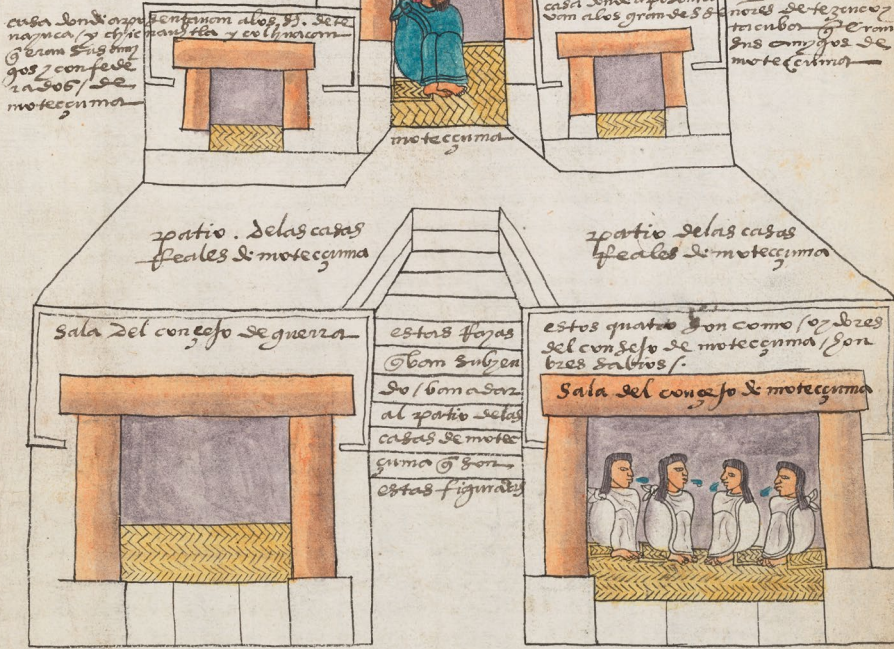 casa donde aposentavan a los Sres. de te
nayuca / y chiconautla y colhuacan
q̃ eran sus ami
gos y confede
rados / de
motecçuma
van a los grandes señores de tezcuco y
tacuba q̃ eran
sus amygos de
motecçuma
motecçuma
patio . delas casas
Reales de motecçuma
patio delas casas
Reales de motecçuma
Sala del conçejo de guerra
estas Rayas
q̃ van subyen
do / van a dar
al patio delas
casas de motec
çuma q̃ son
estas figuradas
estos quatro son como / oydores
del consejo de motecçuma / hon
bres sabios /.
Sala del conçejo de motecçuma